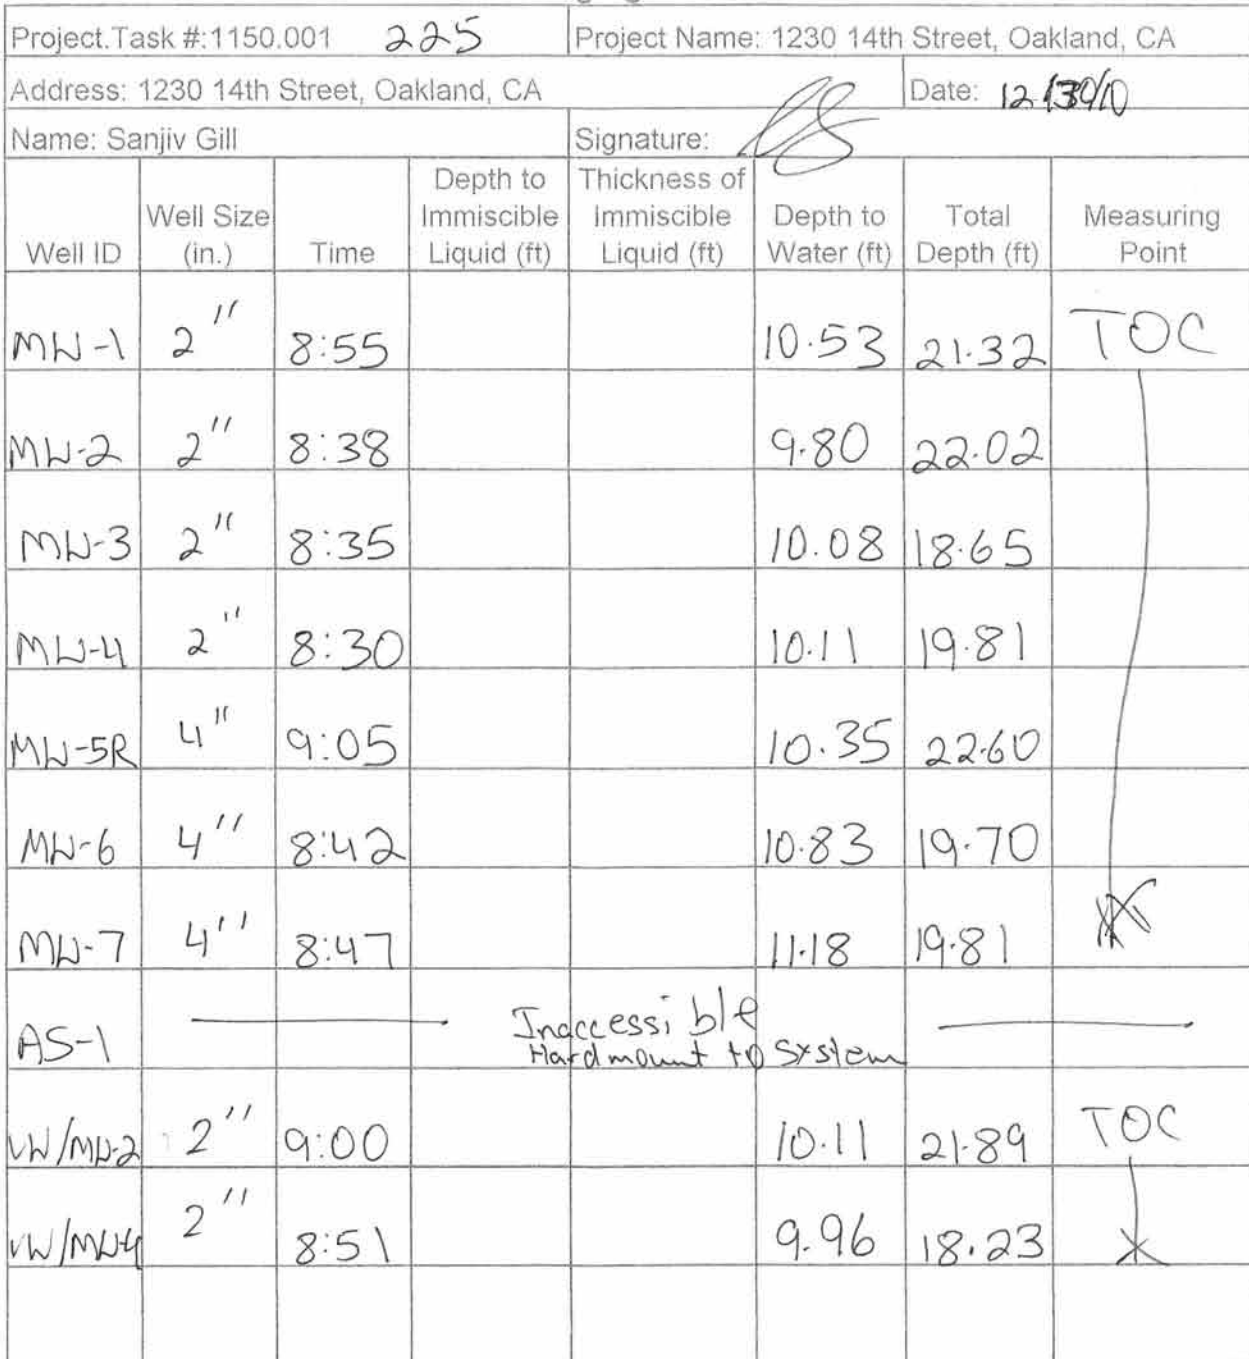 Project.Task #:1150.001 225 Project Name: 1230 14th Street, Oakland, CA
Address: 1230 14th Street, Oakland, CA Date: 12/30/10
Name: Sanjiv Gill Signature:
Well ID Well Size (in.) Time Depth to Immiscible Liquid (ft) Thickness of Immiscible Liquid (ft) Depth to Water (ft) Total Depth (ft) Measuring Point
MW-1 2" 8:55 10.53 21.32 TOC
MW-2 2" 8:38 9.80 22.02
MW-3 2" 8:35 10.08 18.65
MW-4 2" 8:30 10.11 19.81
MW-5R 4" 9:05 10.35 22.60
MW-6 4" 8:42 10.83 19.70
MW-7 4" 8:47 11.18 19.81
AS-1 Inaccessible
Hardmount to system
VW/MW-2 2" 9:00 10.11 21.89 TOC
VW/MW-4 2" 8:51 9.96 18.23